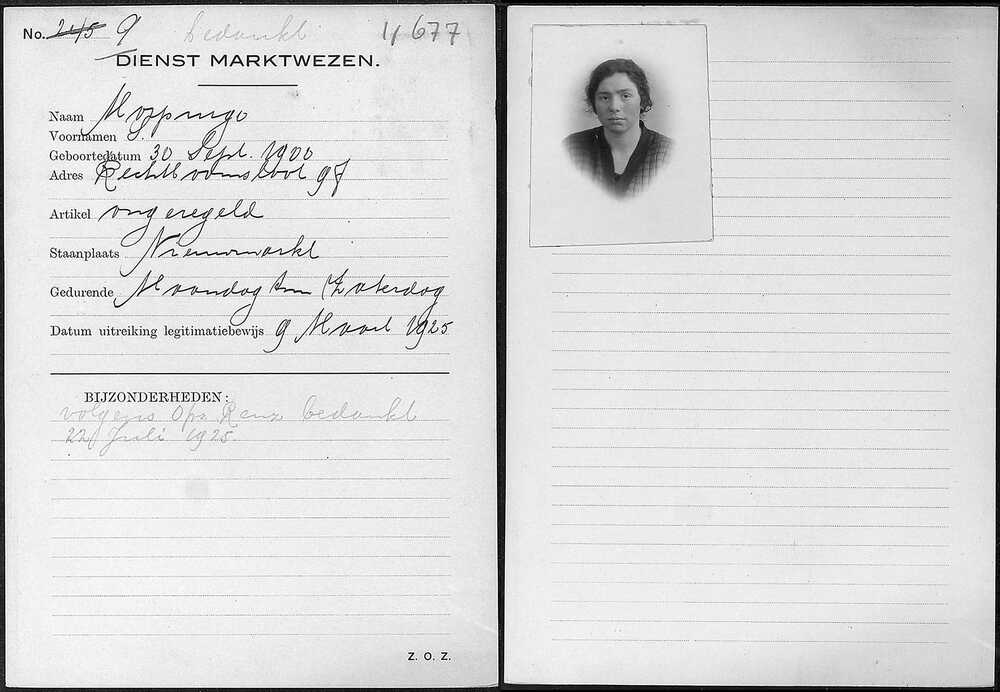 No. 245 9 bedankt 4677
DIENST MARKTWEZEN.
Naam Moppings
Voornamen J.
Geboortedatum 30 Sept. 1900
Adres Rechtboomsloot 97
Artikel ongeregeld
Staanplaats Nieuwmarkt
Gedurende Maandag tm Zaterdag
Datum uitreiking legitimatiebewijs 9 Maart 1925
BIJZONDERHEDEN:
volgens Opz. bedankt
22 Juli 1925.
Z. O. Z.